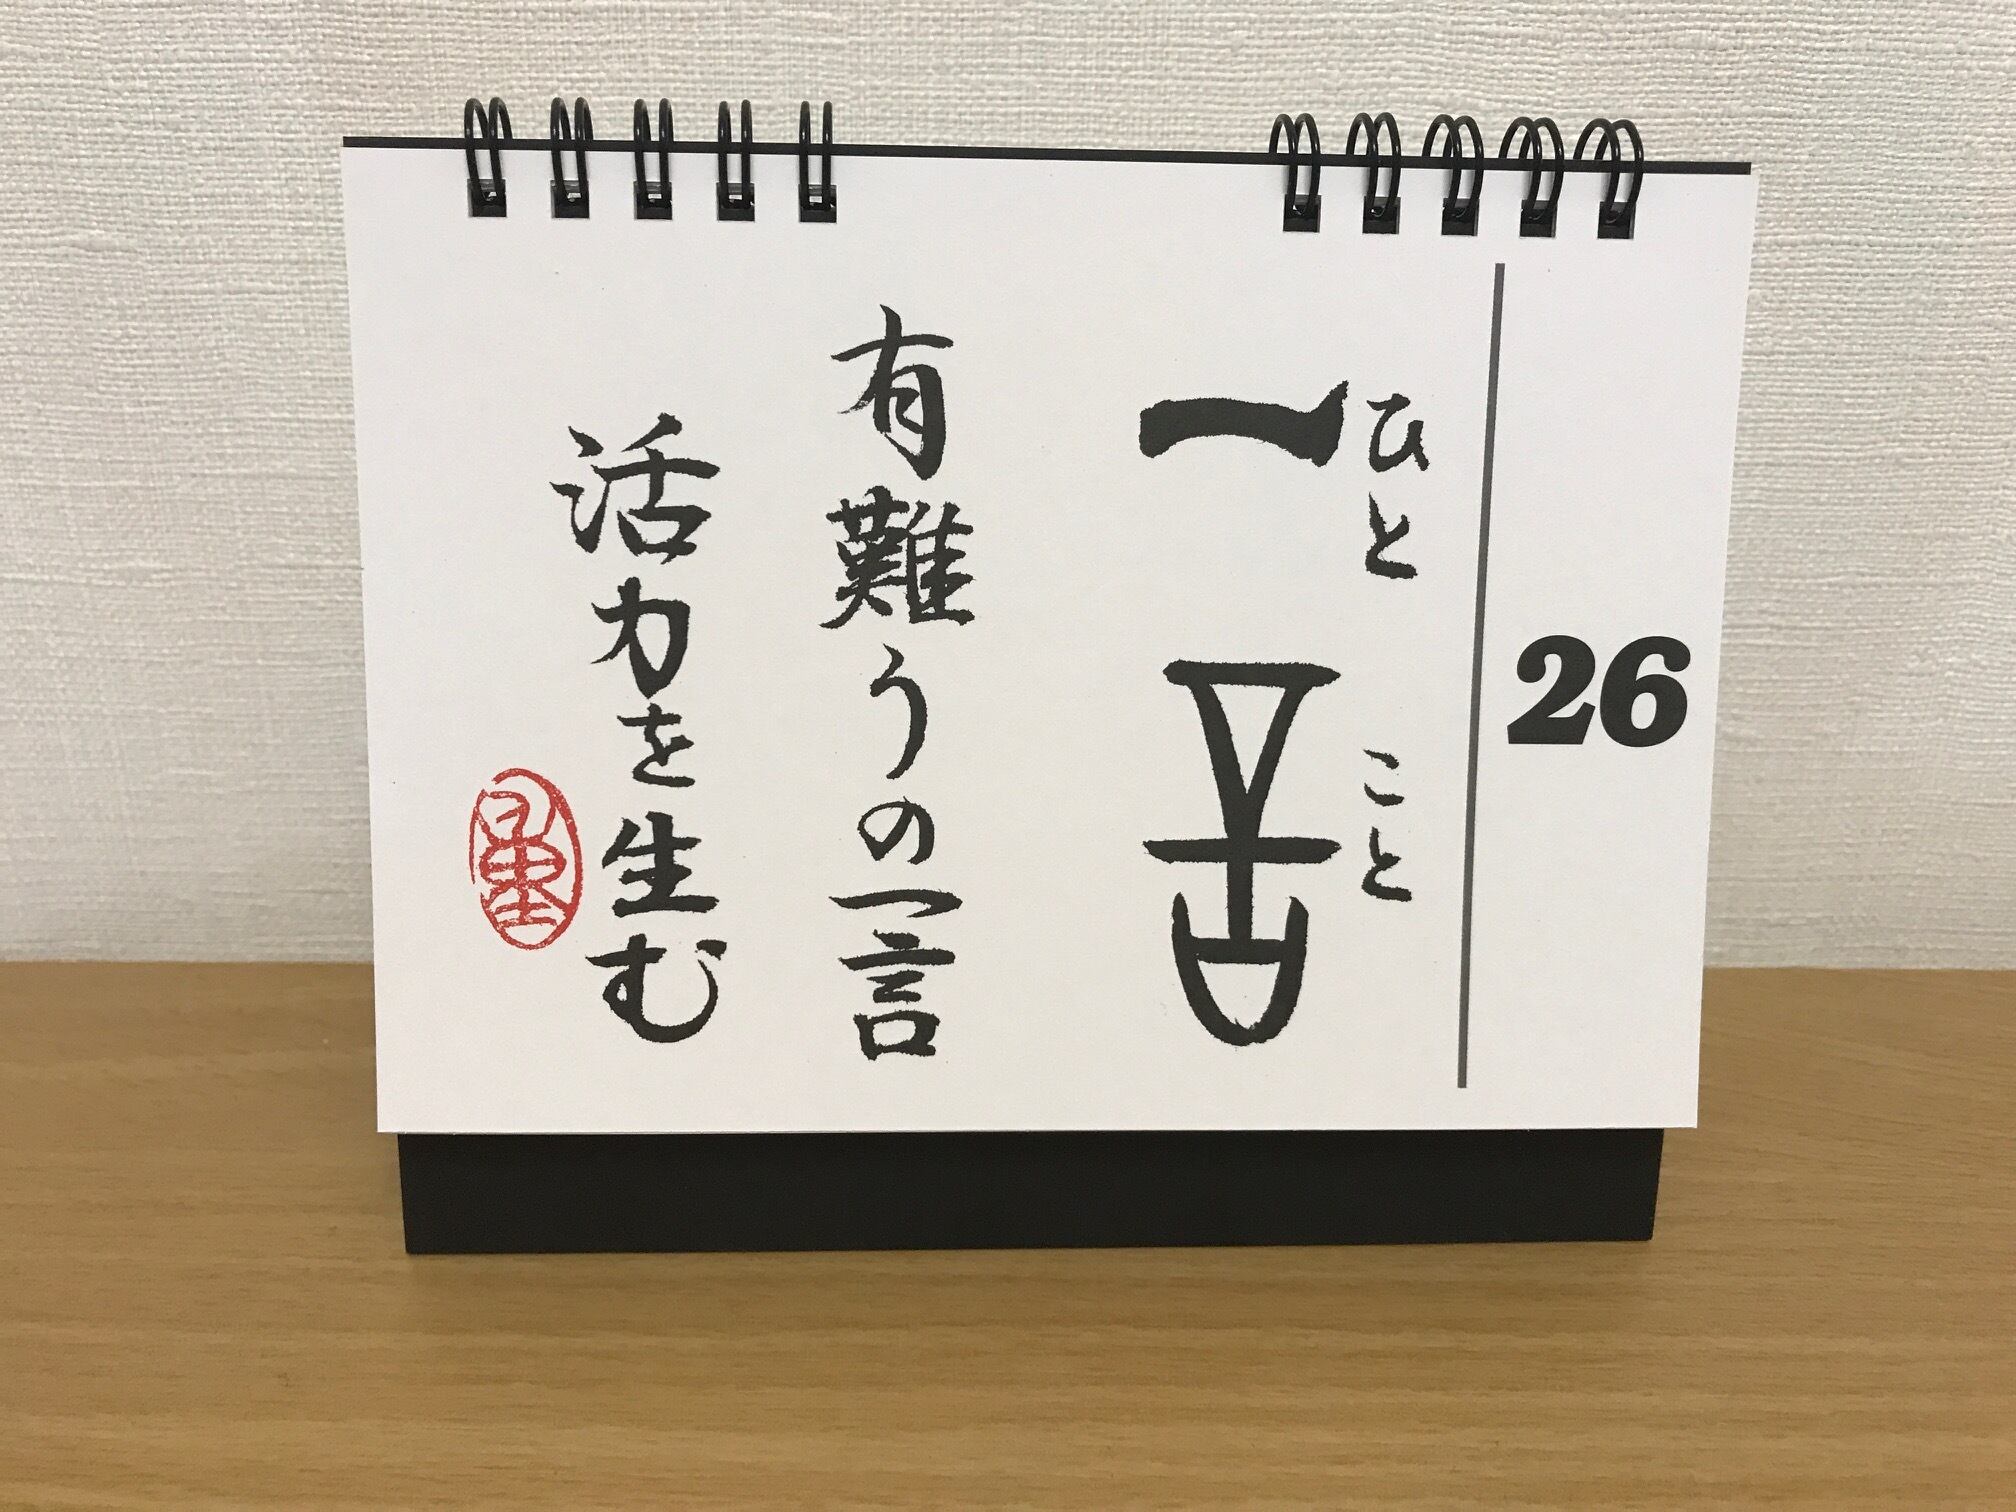 26
ひと こと
一言
有難うの一言
活力を生む